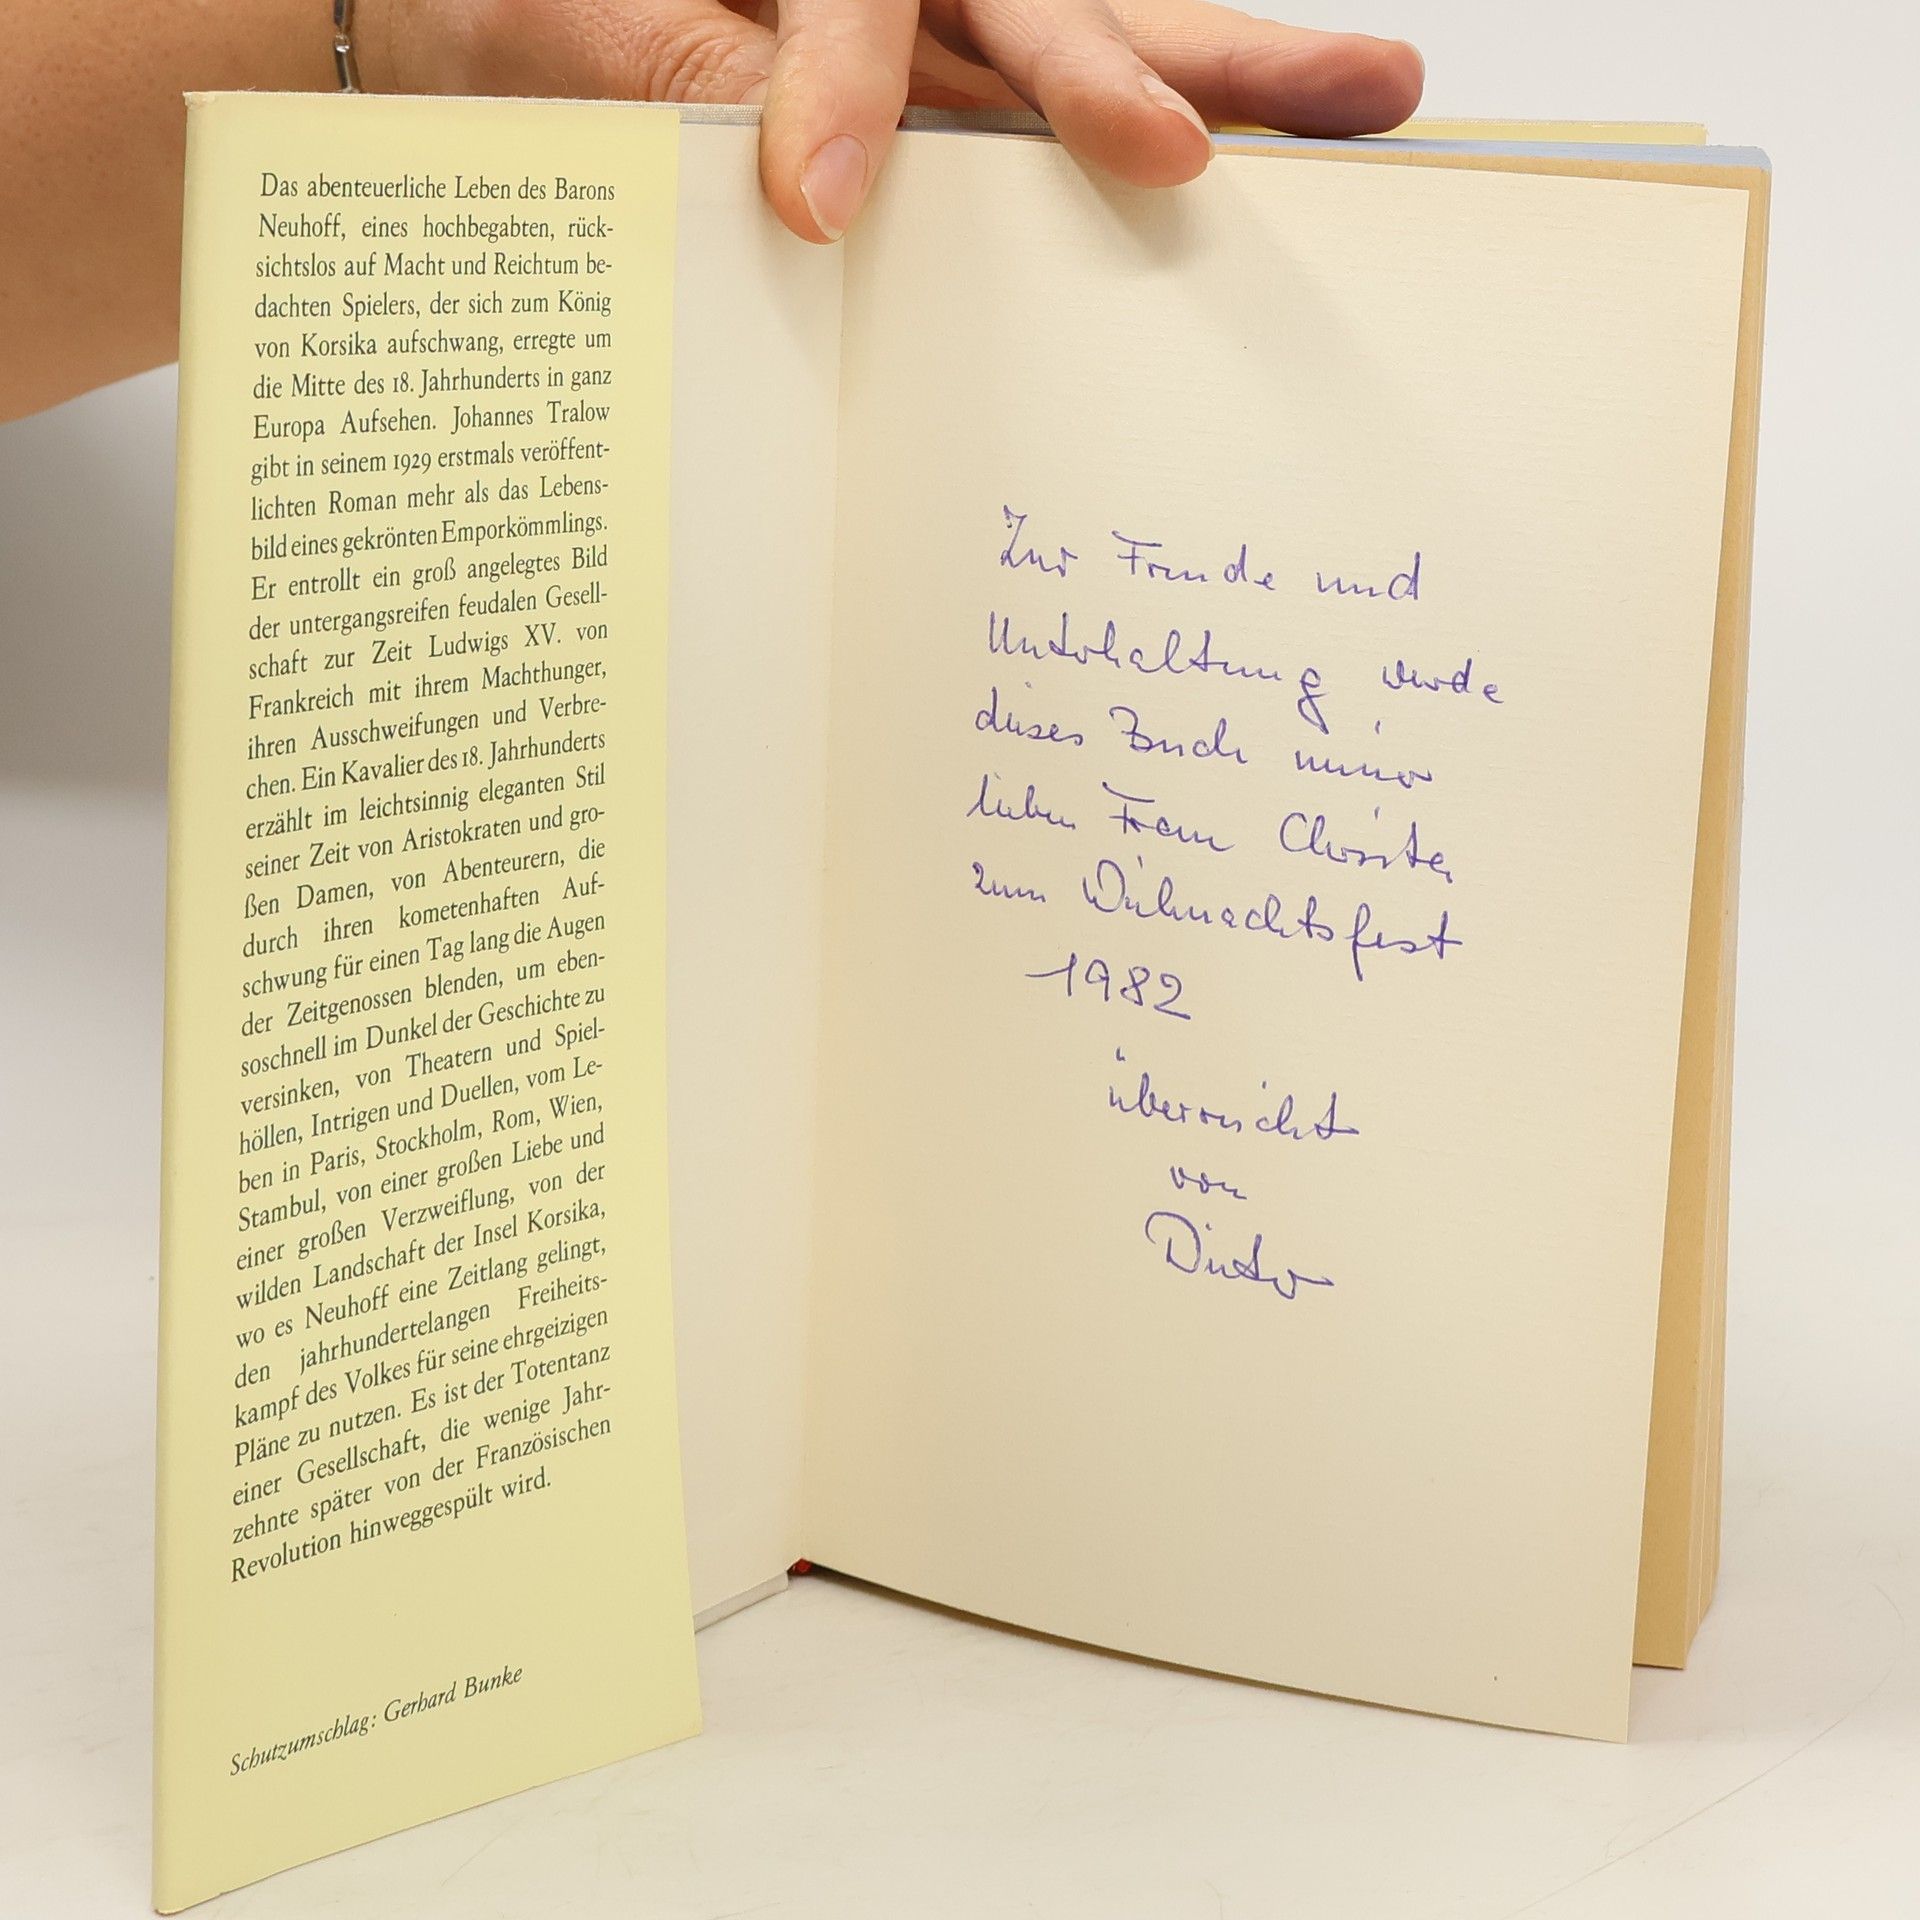 Das abenteuerliche Leben des Barons
Neuhoff, eines hochbegabten, rück-
sichtslos auf Macht und Reichtum be-
dachten Spielers, der sich zum König
von Korsika aufschwang, erregte um
die Mitte des 18. Jahrhunderts in ganz
Europa Aufsehen. Johannes Tralow
gibt in seinem 1929 erstmals veröffent-
lichten Roman mehr als das Lebens-
bild eines gekrönten Emporkömmlings.
Er entrollt ein groß angelegtes Bild
der untergangsreifen feudalen Gesell-
schaft zur Zeit Ludwigs XV. von
Frankreich mit ihrem Machthunger,
ihren Ausschweifungen und Verbre-
chen. Ein Kavalier des 18. Jahrhunderts
erzählt im leichtsinnig eleganten Stil
seiner Zeit von Aristokraten und gro-
ßen Damen, von Abenteurern, die
durch ihren kometenhaften Auf-
schwung für einen Tag lang die Augen
der Zeitgenossen blenden, um eben-
soschnell im Dunkel der Geschichte zu
versinken, von Theatern und Spiel-
höllen, Intrigen und Duellen, vom Le-
ben in Paris, Stockholm, Rom, Wien,
Stambul, von einer großen Liebe und
einer großen Verzweiflung, von der
wilden Landschaft der Insel Korsika,
wo es Neuhoff eine Zeitlang gelingt,
den jahrhundertelangen Freiheits-
kampf des Volkes für seine ehrgeizigen
Pläne zu nutzen. Es ist der Totentanz
einer Gesellschaft, die wenige Jahr-
zehnte später von der Französischen
Revolution hinweggespült wird.
Schutzumschlag: Gerhard Bunke
Zur Freude und
Unterhaltung werde
dieses Buch meiner
lieben Frau Christa,
zum Weihnachtsfest
1982
überreicht
von
Dieter